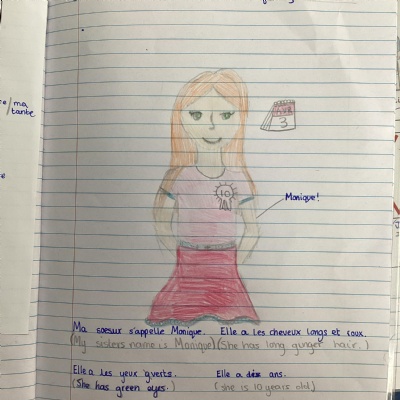 /ma
tante
AVR
3
10
Monique!
Ma soesur s'appelle Monique. Elle a les cheveux longs et roux.
(My sisters name is Monique) (She has long ginger hair.)
Elle a les yeux verts. Elle a dix ans.
(She has green eyes.) (she is 10 years old)